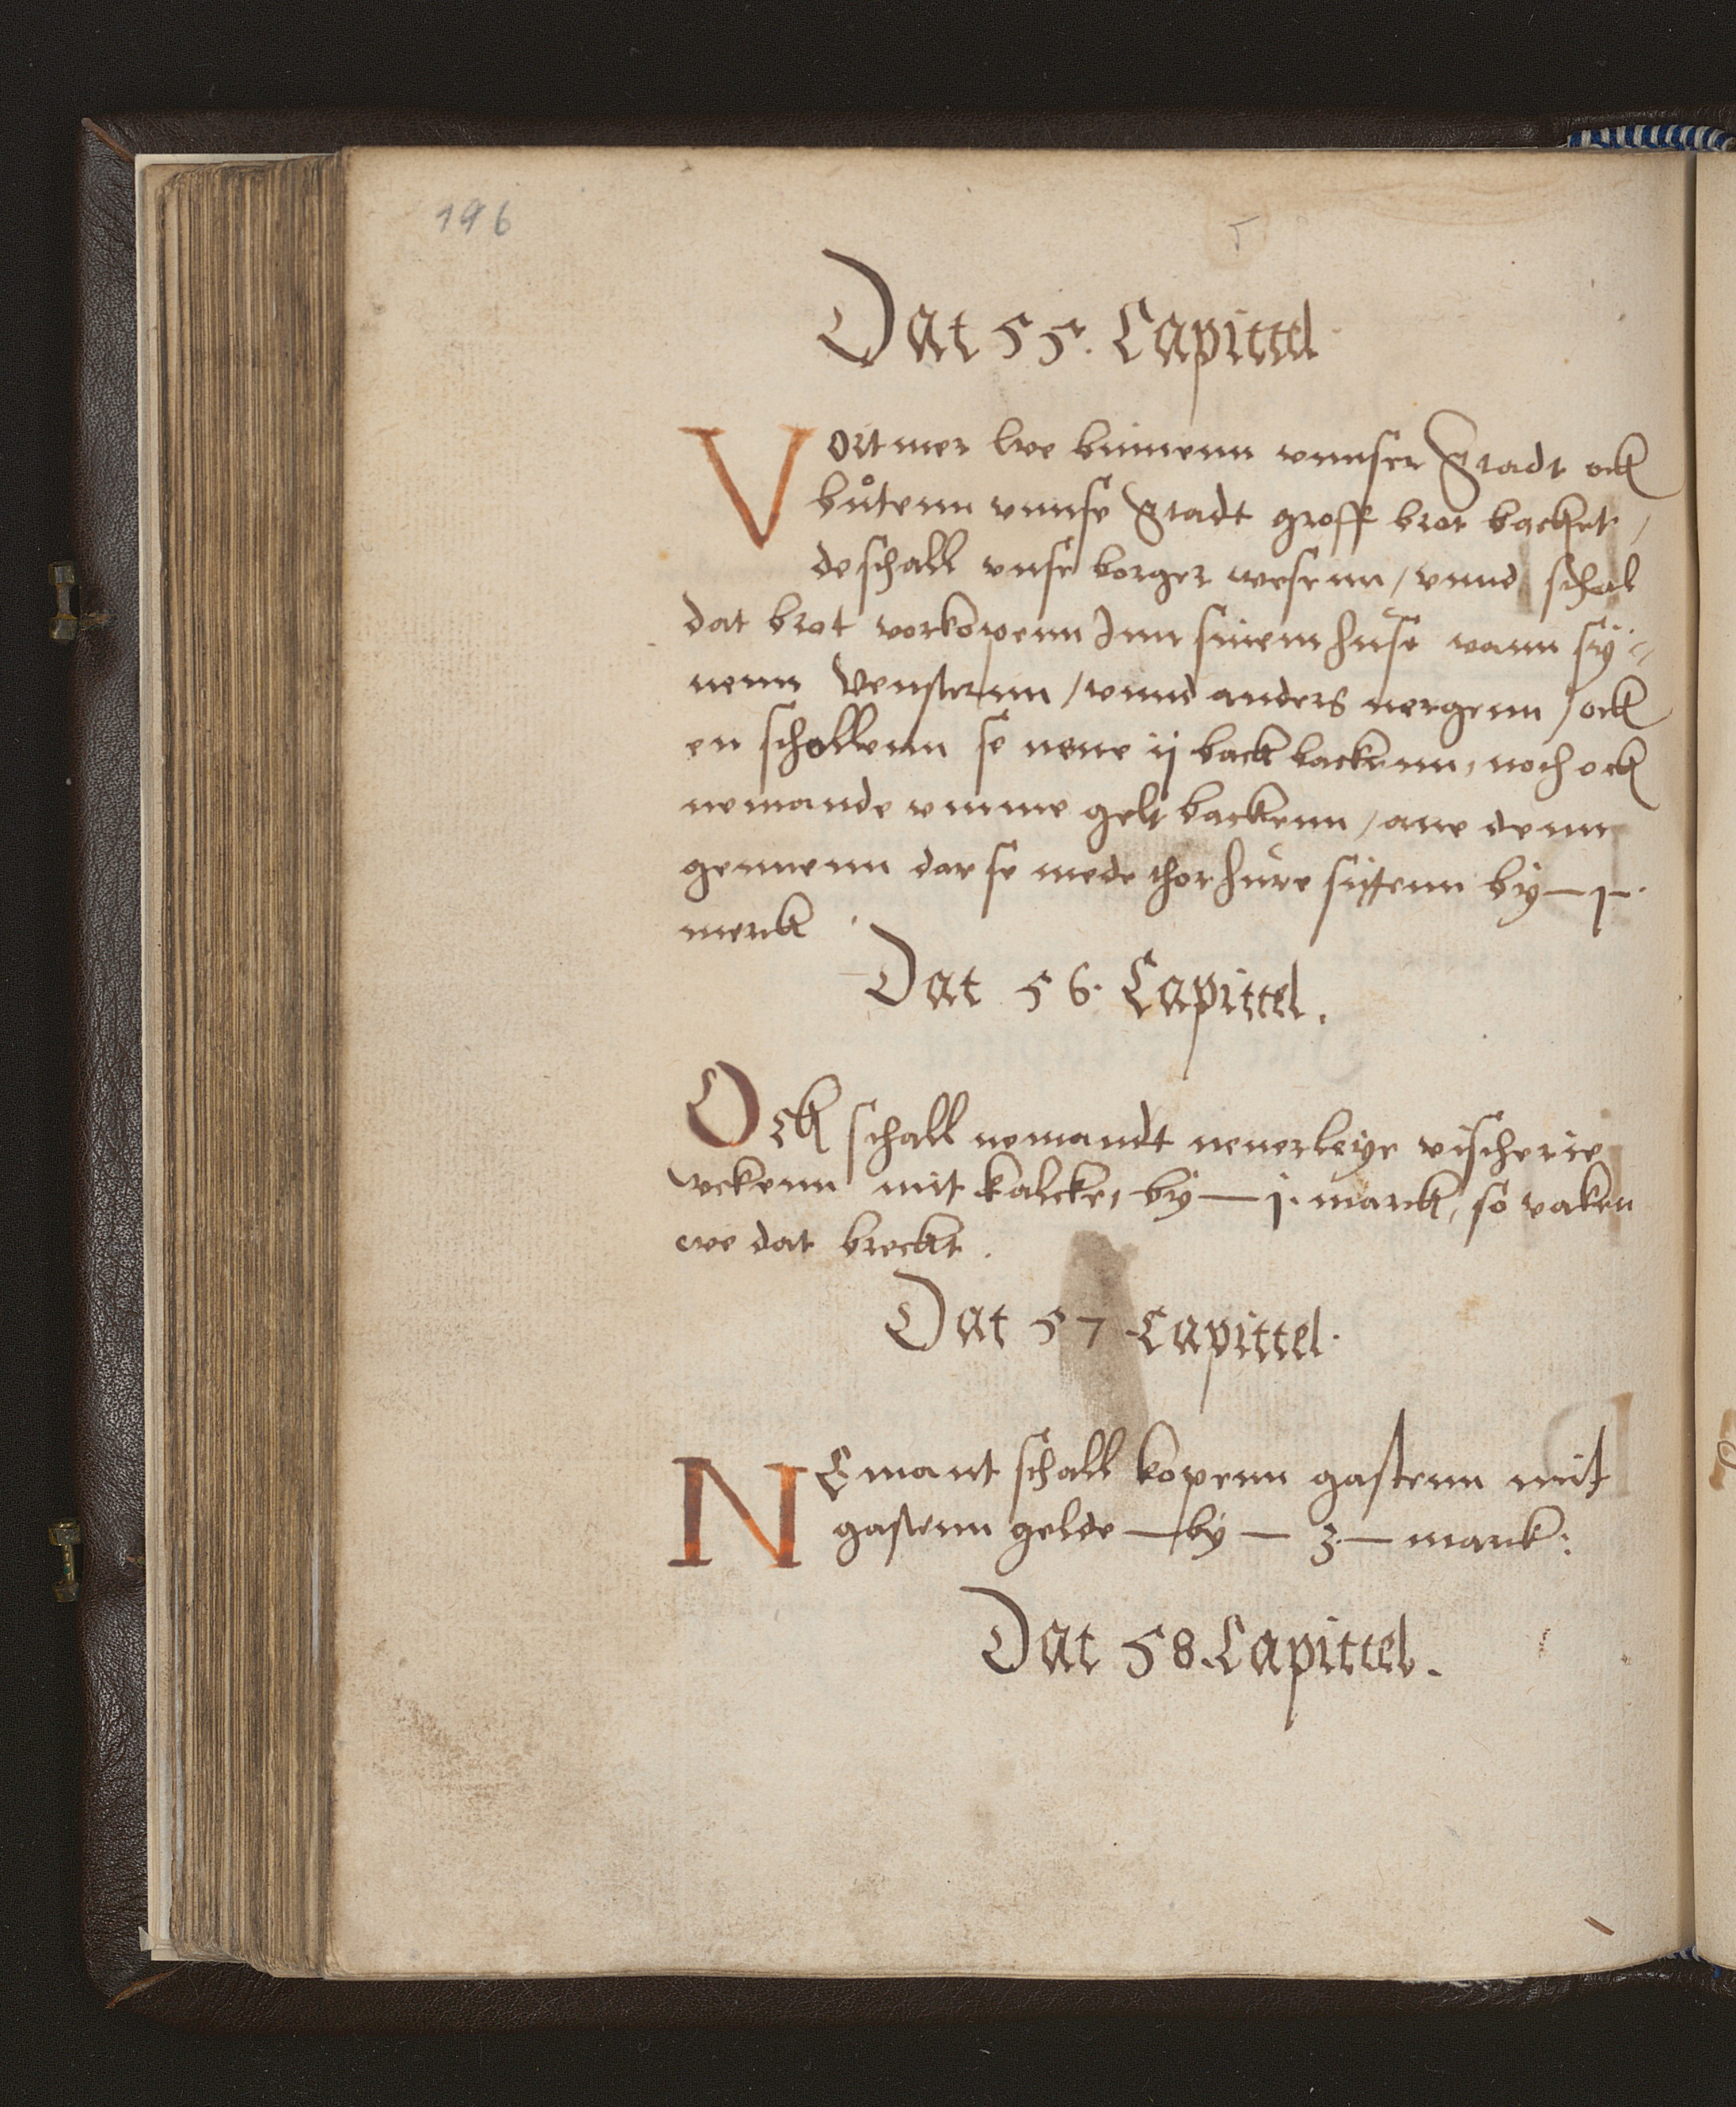 196
Dat 55. Capittel
Vortmer we binnenn vnnser Stadt ock
buͦtenn vnnse Stadt groff brot backet /
de schall vnse borger wesenn / vnnd schal
dat brot vorkopenn Inn sinem huse vann sÿ=
nenn Vensternn / vnnd anders nergenn / ock
en schollenn se nene ij back backenn, noch ock
nemande vmme gelt backenn / ane denn
gennenn dar se mede thor hure sittenn bÿ – 1 –
marck
Dat 56. Capittel.
Ock schall nemandt nenerleÿe vischerie
vckenn mit kalcke, bÿ – j. marck, so vaken
we dat breckt.
Dat 57 Capittel.
NEmant schall kopenn gastenn mit
gastenn gelde – bÿ – 3 – marck:
Dat 58. Capittel.